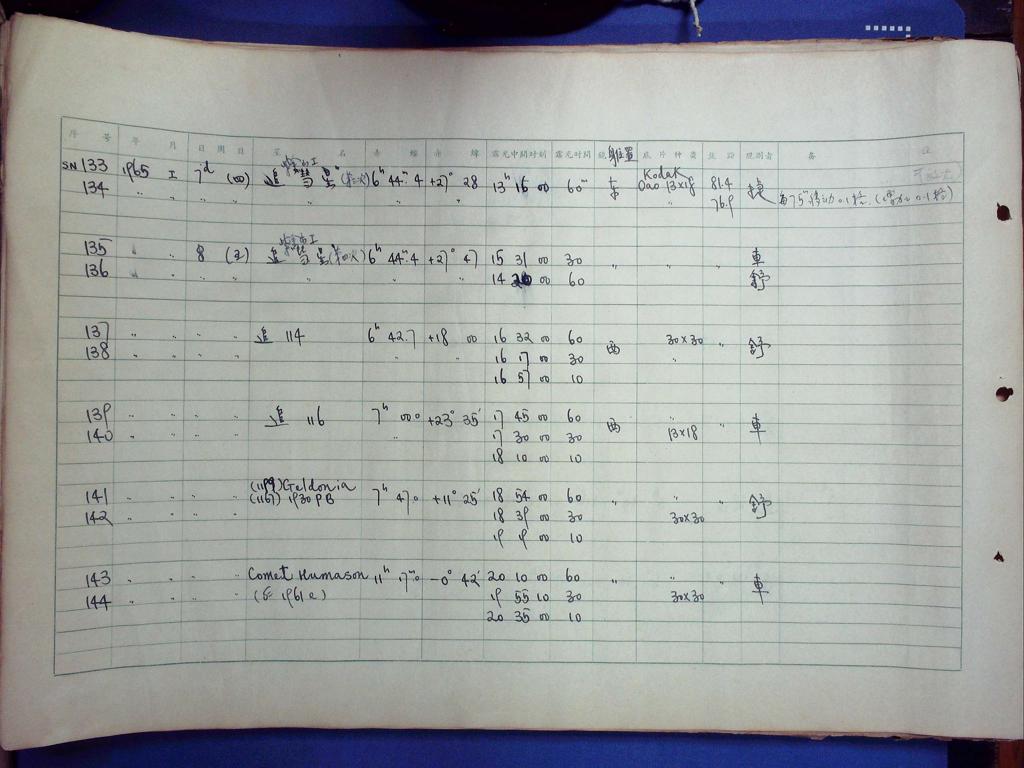 序 号 年 月 日 周日 星 名 赤 经 赤 纬 露光中间时刻 露光时间 镜 位置 底 片 种 类 焦 距 观测者 备 注
SN 133 1965 I 7d (四) 追 彗星 6h 44m.4 +27° 28 13h 16 00 60m 东 Kodak Oao 13×18 81.4
134 〃 〃 〃 〃 〃 76.9
135 〃 8 (五) 追 彗星 6h 44m.4 +27° 47 15 31 00 30 〃 〃 〃 車
136 〃 〃 〃 〃 14 20 00 60 舒
137 〃 〃 〃 〃 追 114 6h 42.7 +18 00 16 32 00 60 西 30×30 〃 舒
138 〃 〃 〃 〃 〃 〃 16 17 00 30 〃
16 57 00 10
139 〃 〃 〃 〃 追 116 7h 00.0 +23° 35' 17 45 00 60 西 〃 〃 車
140 〃 〃 〃 〃 〃 17 30 00 30 13×18
18 10 00 10
(1199) Geldonia
141 〃 〃 〃 〃 (1161) 1930 PB 7h 47.0 +11° 25' 18 54 00 60 〃 〃 〃 舒
142 〃 〃 〃 〃 18 39 00 30 30×30
19 19 00 10
143 〃 〃 〃 〃 Comet Humason 11h 17m.0 -0° 42' 20 10 00 60 〃 〃 車
144 〃 〃 〃 〃 1961e) 19 55 10 30 30×30
20 35 00 10